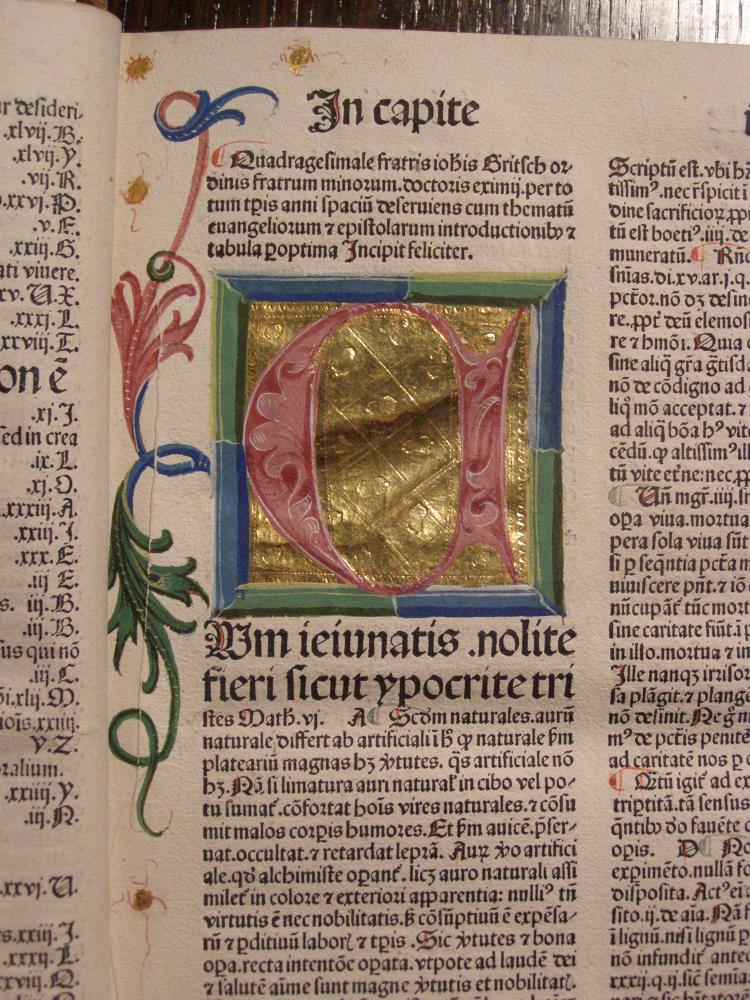 ur desideri.
.xlvij.B.
.xlvij.Y.
.vij.R.
.xxvj.P.
.v.E.
.xxiij.G.
ati viuere.
xv.U.X.
.xxxj.L.
xxviij.T.
on ē
.xj.J.
sed in crea
.ix.L.
.xj.O.
.xxxiij.A.
.xxiij.J.
.xxx.E.
.iij E.
s. iij.B.
.iij.B.
sus qui nō
.iij.C.
.xlij.M.
.xxiiij.
V.Z.
ralium.
.xxiij.Y.
.iij.N.
.xxvj.U.
.xxiij.J.
.xxxj.L.
xxviij.Q.
In capite
Quadragesimale fratris iohis Gritsch or-
dinis fratrum minorum.doctoris eximij.per to
tum tpis anni spaciū deseruiens cum thematū
euangeliorum ⁊ epistolarum introductionibꝫ ⁊
tabula ꝑoptima Incipit feliciter.
C
Um ieiunatis .nolite
fieri sicut ypocrite tri
stes Math.vj. A Scdm naturales.aurū
naturale differt ab artificiali ī h̄ ꝙ naturale ẜm
plateariū magnas hꝫ v̓tutes. qs artificiale nō
hꝫ. Nā si limatura auri natural̓ in cibo vel po-
tu sumat̉.cōfortat hoīs vires naturales.⁊ cōsu
mit malos corꝑis humores. Et ẜm auicē.p̄ser-
uat.occultat.⁊ retardat leprā. Auꝝ v̓o artifici
ale.qd̓ alchimiste oꝑant̉. licꝫ auro naturali assi
milet̉ in colore ⁊ exteriori apparentia: nulliꝰ tn̄
virtutis ē nec nobilitatis.ẜꝫ cōsūptiuū ē expēsa-
rū ⁊ ꝑditiuū laboꝝ ⁊ tpis .Sic v̓tutes ⁊ bona
oꝑa.recta intentōe oꝑata.vtpote ad laudē dei
⁊ salutē aīme sunt magne v̓tutis et nobilitat̉.
Scriptū est.vbi
tissimꝰ.nec r̄spicit i
dine sacrificioꝝ.
tū est boetiꝰ.iiij.de
muneratū. Rn̄
sn̄ias.di.xv.ar.j.q.
pctōr.nō dꝫ desin
re.ꝓpt̉ deū elemos
re ⁊ hmōi. Quia
sine aliq̄ gr̄a
nō de cōdigno ad
liq̊ mō acceptat.⁊
ad aliq̄ bōa hꝰ vite
cēdū.ꝙ altissimꝰ ill
tū vite et̉ne:nec
Un̄ mgr̄.iiij.
oꝑa viua.mortua
pera sola viua sūt
si ꝑ seq̄ntia pctā m
uiuiscere pn̄t.⁊ iō
nūcupāt̉ tūc mort
sine caritate fiūt.
in illo.mortua ⁊ in
Ille nanqꝫ irrisor
sa plāgit.⁊ plange
nō desinit. Ne
mꝰ de pctīs penitē
ad caritatē nos
Q̄tū igit̉ ad ex
triptitā.tā sensus
q̄ntibꝫ do fauēte
oꝑis. D No
exꝑimēto.nullā fo
disposita. Actꝰ
sito.ij.de aīa. Nā
ī lignū.nisi lignū
nō infundit̉ ante
xxxij.q.ij.sic semen